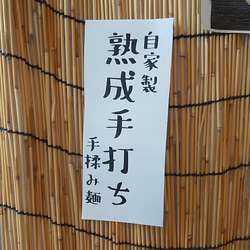 自家製
熟成手打ち
手揉み麺